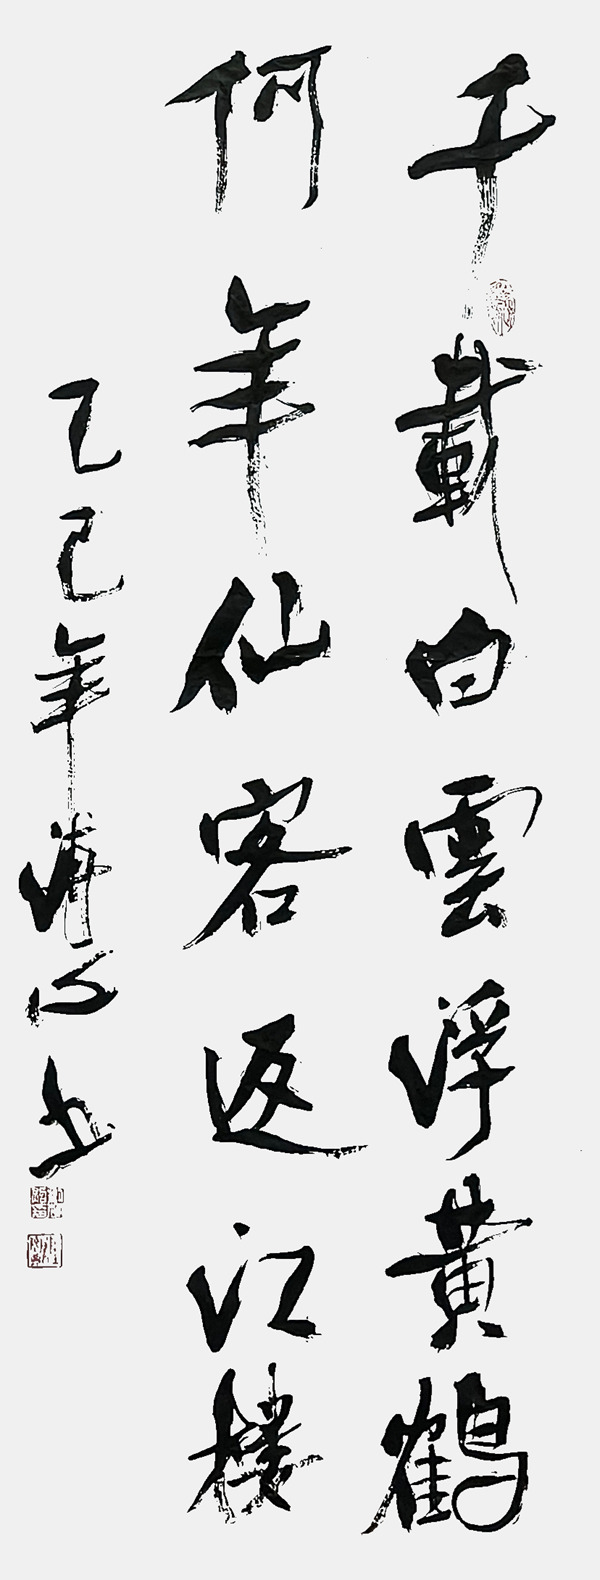 千載白雲浮黃鶴
何年仙客返江樓
乙巳年海心書